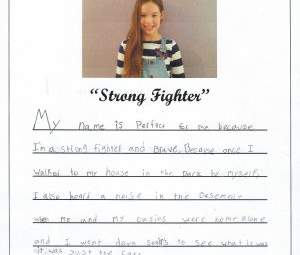 “Strong Fighter”
My name is Perfect for me because
I'm a strong fighter and Brave, Because once I
walked to my house in the Dark by myself,
I also heard a noise in the Basement
when me and my cusins were home alone
and I went down to see what it was
it was just the